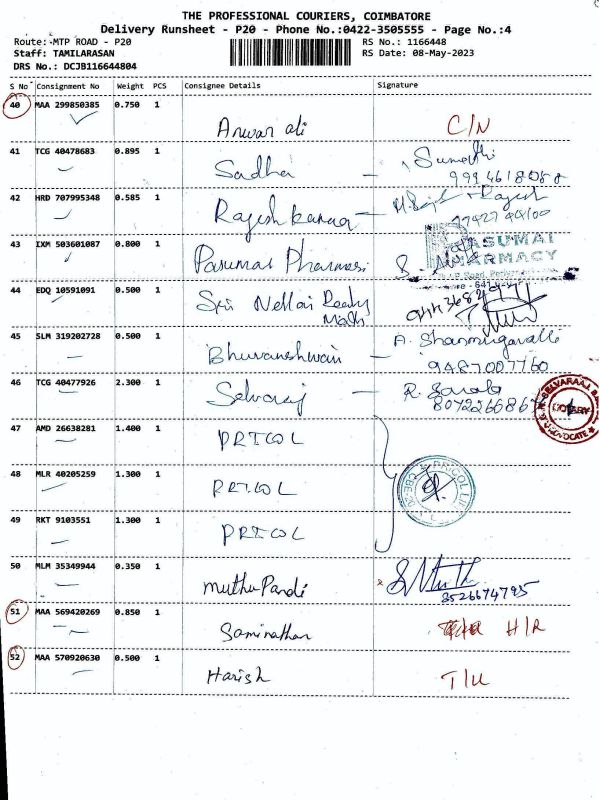 THE PROFESSIONAL COURIERS, COIMBATORE
Delivery Runsheet - P20 - Phone No.:0422-3505555 - Page No.:4
Route:-MTP ROAD - P20 RS No.: 1166448
Staff: TAMILARASAN RS Date: 08-May-2023
DRS No.: DCJB116644804
S No Consignment No Weight PCS Consignee Details Signature
40 MAA 299850385 0.750 1
Anwar ali C/N
41 TCG 40478683 0.895 1
Sadha - Sumathi
42 HRD 707995348 0.585 1
Rajeshkumar - Rajesh
43 IXM 503601087 0.800 1
Pasumai Pharmasi PASUMAI
PHARMACY
44 EDQ 10591091 0.500 1
Sri Nellai Ready
45 SLM 319202728 0.500 1
Bhuvaneshwari - A. Shanmugavalli
9487007760
46 TCG 40477926 2.300 1
Selvaraj - R. Sarala
47 AMD 26638281 1.400 1
PRICOL
48 MLR 40205259 1.300 1
PRICOL
49 RKT 9103551 1.300 1
PRICOL
50 MLM 35349944 0.350 1
MuthuPandi S. Muth
3526674795
51 MAA 569420269 0.850 1
Saminathan H/R
52 MAA 570920630 0.500 1
Harish T/U